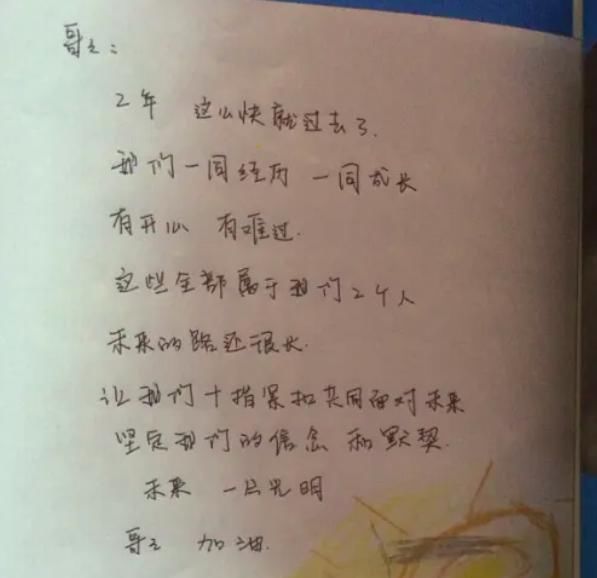 哥々:
2年 这么快就过去了.
我们一同经历 一同成长
有开心 有难过.
这些全部属于我们2个人
未来的路还很长.
让我们十指紧扣共同面对未来
坚定我们的信念 和默契.
未来 一片光明
哥々 加油.